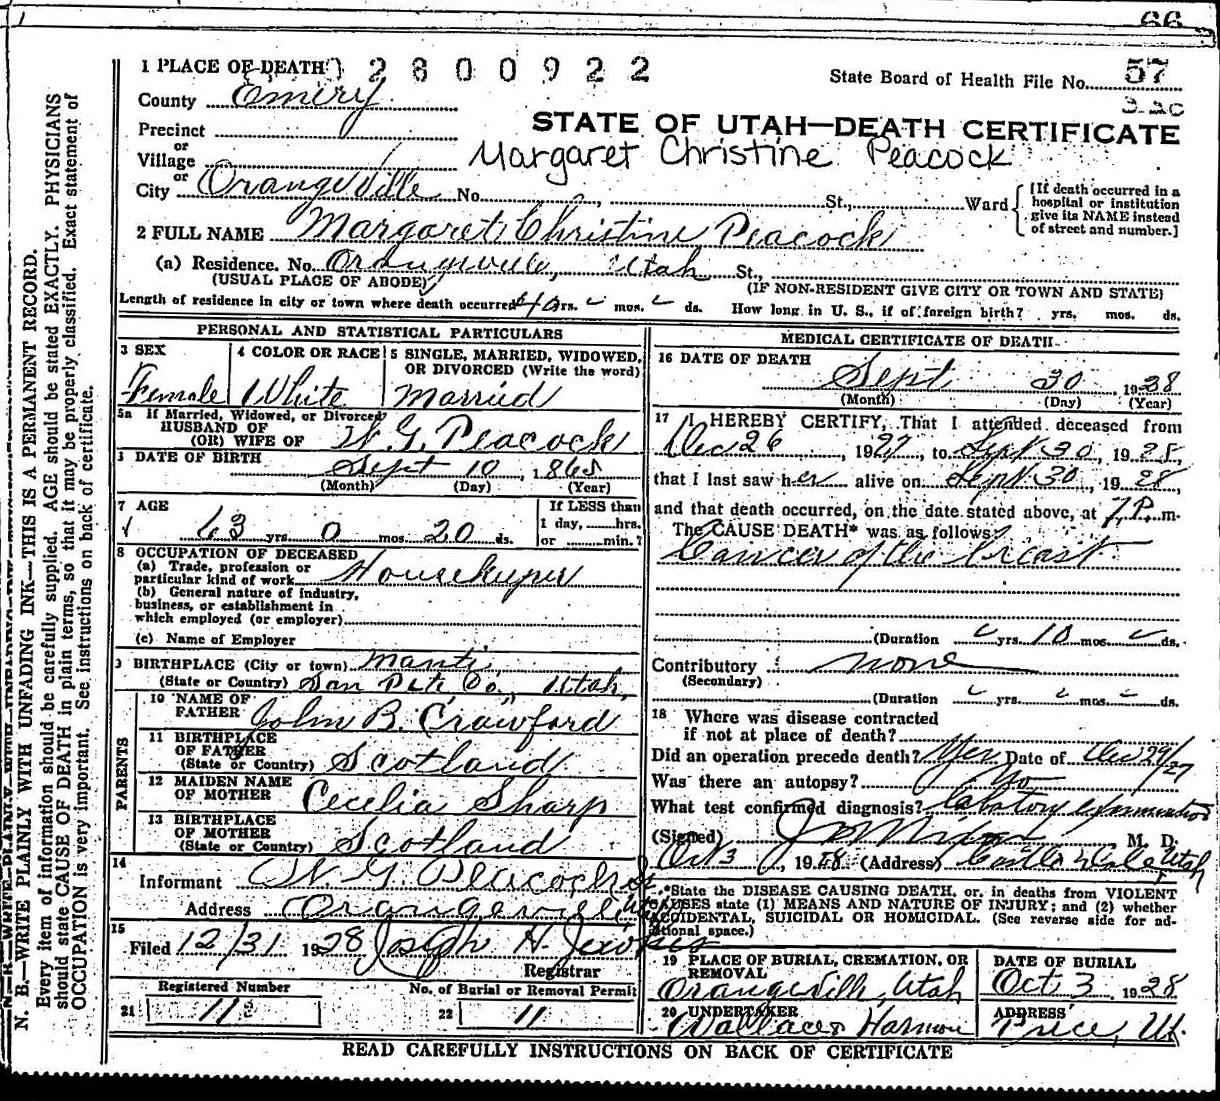 66
1 PLACE OF DEATH 2800922
State Board of Health File No. 57
County Emery
Precinct
STATE OF UTAH—DEATH CERTIFICATE
or
Village
Margaret Christine Peacock
or
City Orangeville No. St., Ward
[If death occurred in a hospital or institution give its NAME instead of street and number.]
2 FULL NAME Margaret Christine Peacock
(a) Residence. No. Orangeville, Utah St.,
(USUAL PLACE OF ABODE) (IF NON-RESIDENT GIVE CITY OR TOWN AND STATE)
Length of residence in city or town where death occurred yrs. mos. ds. How long in U. S., if of foreign birth? yrs. mos. ds.
PERSONAL AND STATISTICAL PARTICULARS
3 SEX Female
4 COLOR OR RACE White
5 SINGLE, MARRIED, WIDOWED, OR DIVORCED (Write the word) Married
5a If Married, Widowed, or Divorced
HUSBAND OF
(OR) WIFE OF W. G. Peacock
DATE OF BIRTH Sept 10, 1865
(Month) (Day) (Year)
7 AGE 63 yrs. 0 mos. 20 ds.
If LESS than
1 day, hrs.
or min.?
8 OCCUPATION OF DECEASED
(a) Trade, profession or
particular kind of work Housekeeper
(b) General nature of industry,
business, or establishment in
which employed (or employer)
(c) Name of Employer
BIRTHPLACE (City or town) Manti
(State or Country) San Pete Co., Utah,
PARENTS
10 NAME OF FATHER John B. Crawford
11 BIRTHPLACE OF FATHER
(State or Country) Scotland
12 MAIDEN NAME OF MOTHER Cecelia Sharp
13 BIRTHPLACE OF MOTHER
(State or Country) Scotland
14
Informant W. G. Peacock
Address Orangeville
15
Filed 12/31 1928 Joseph H.
Registrar
Registered Number No. of Burial or Removal Permit
21 112 22 11
MEDICAL CERTIFICATE OF DEATH
16 DATE OF DEATH
Sept 30, 1928
(Month) (Day) (Year)
17 I HEREBY CERTIFY, That I attended deceased from
Dec 26, 1927, to Sept 30, 1928,
that I last saw her alive on Sept 30, 1928,
and that death occurred, on the date stated above, at 7 P.m.
The CAUSE DEATH* was as follows:
Cancer of the breast
(Duration yrs. 10 mos. ds.
Contributory none
(Secondary)
(Duration yrs. mos. ds.
18 Where was disease contracted
if not at place of death?
Did an operation precede death? Yes Date of Dec 29/27
Was there an autopsy? No
What test confirmed diagnosis?
(Signed) M. D.
Oct 3, 1928 (Address) Castle Dale, Utah
*State the DISEASE CAUSING DEATH, or, in deaths from VIOLENT
CAUSES state (1) MEANS AND NATURE OF INJURY; and (2) whether
ACCIDENTAL, SUICIDAL OR HOMICIDAL. (See reverse side for ad-
ditional space.)
19 PLACE OF BURIAL, CREMATION, OR REMOVAL
Orangeville, Utah
DATE OF BURIAL
Oct 3, 1928
20 UNDERTAKER
Wallace Harmon
ADDRESS
Price, Ut.
READ CAREFULLY INSTRUCTIONS ON BACK OF CERTIFICATE
N. B.—WRITE PLAINLY WITH UNFADING INK—THIS IS A PERMANENT RECORD.
Every item of information should be carefully supplied. AGE should be stated EXACTLY. PHYSICIANS
should state CAUSE OF DEATH in plain terms, so that it may be properly classified. Exact statement of
OCCUPATION is very important. See instructions on back of certificate.